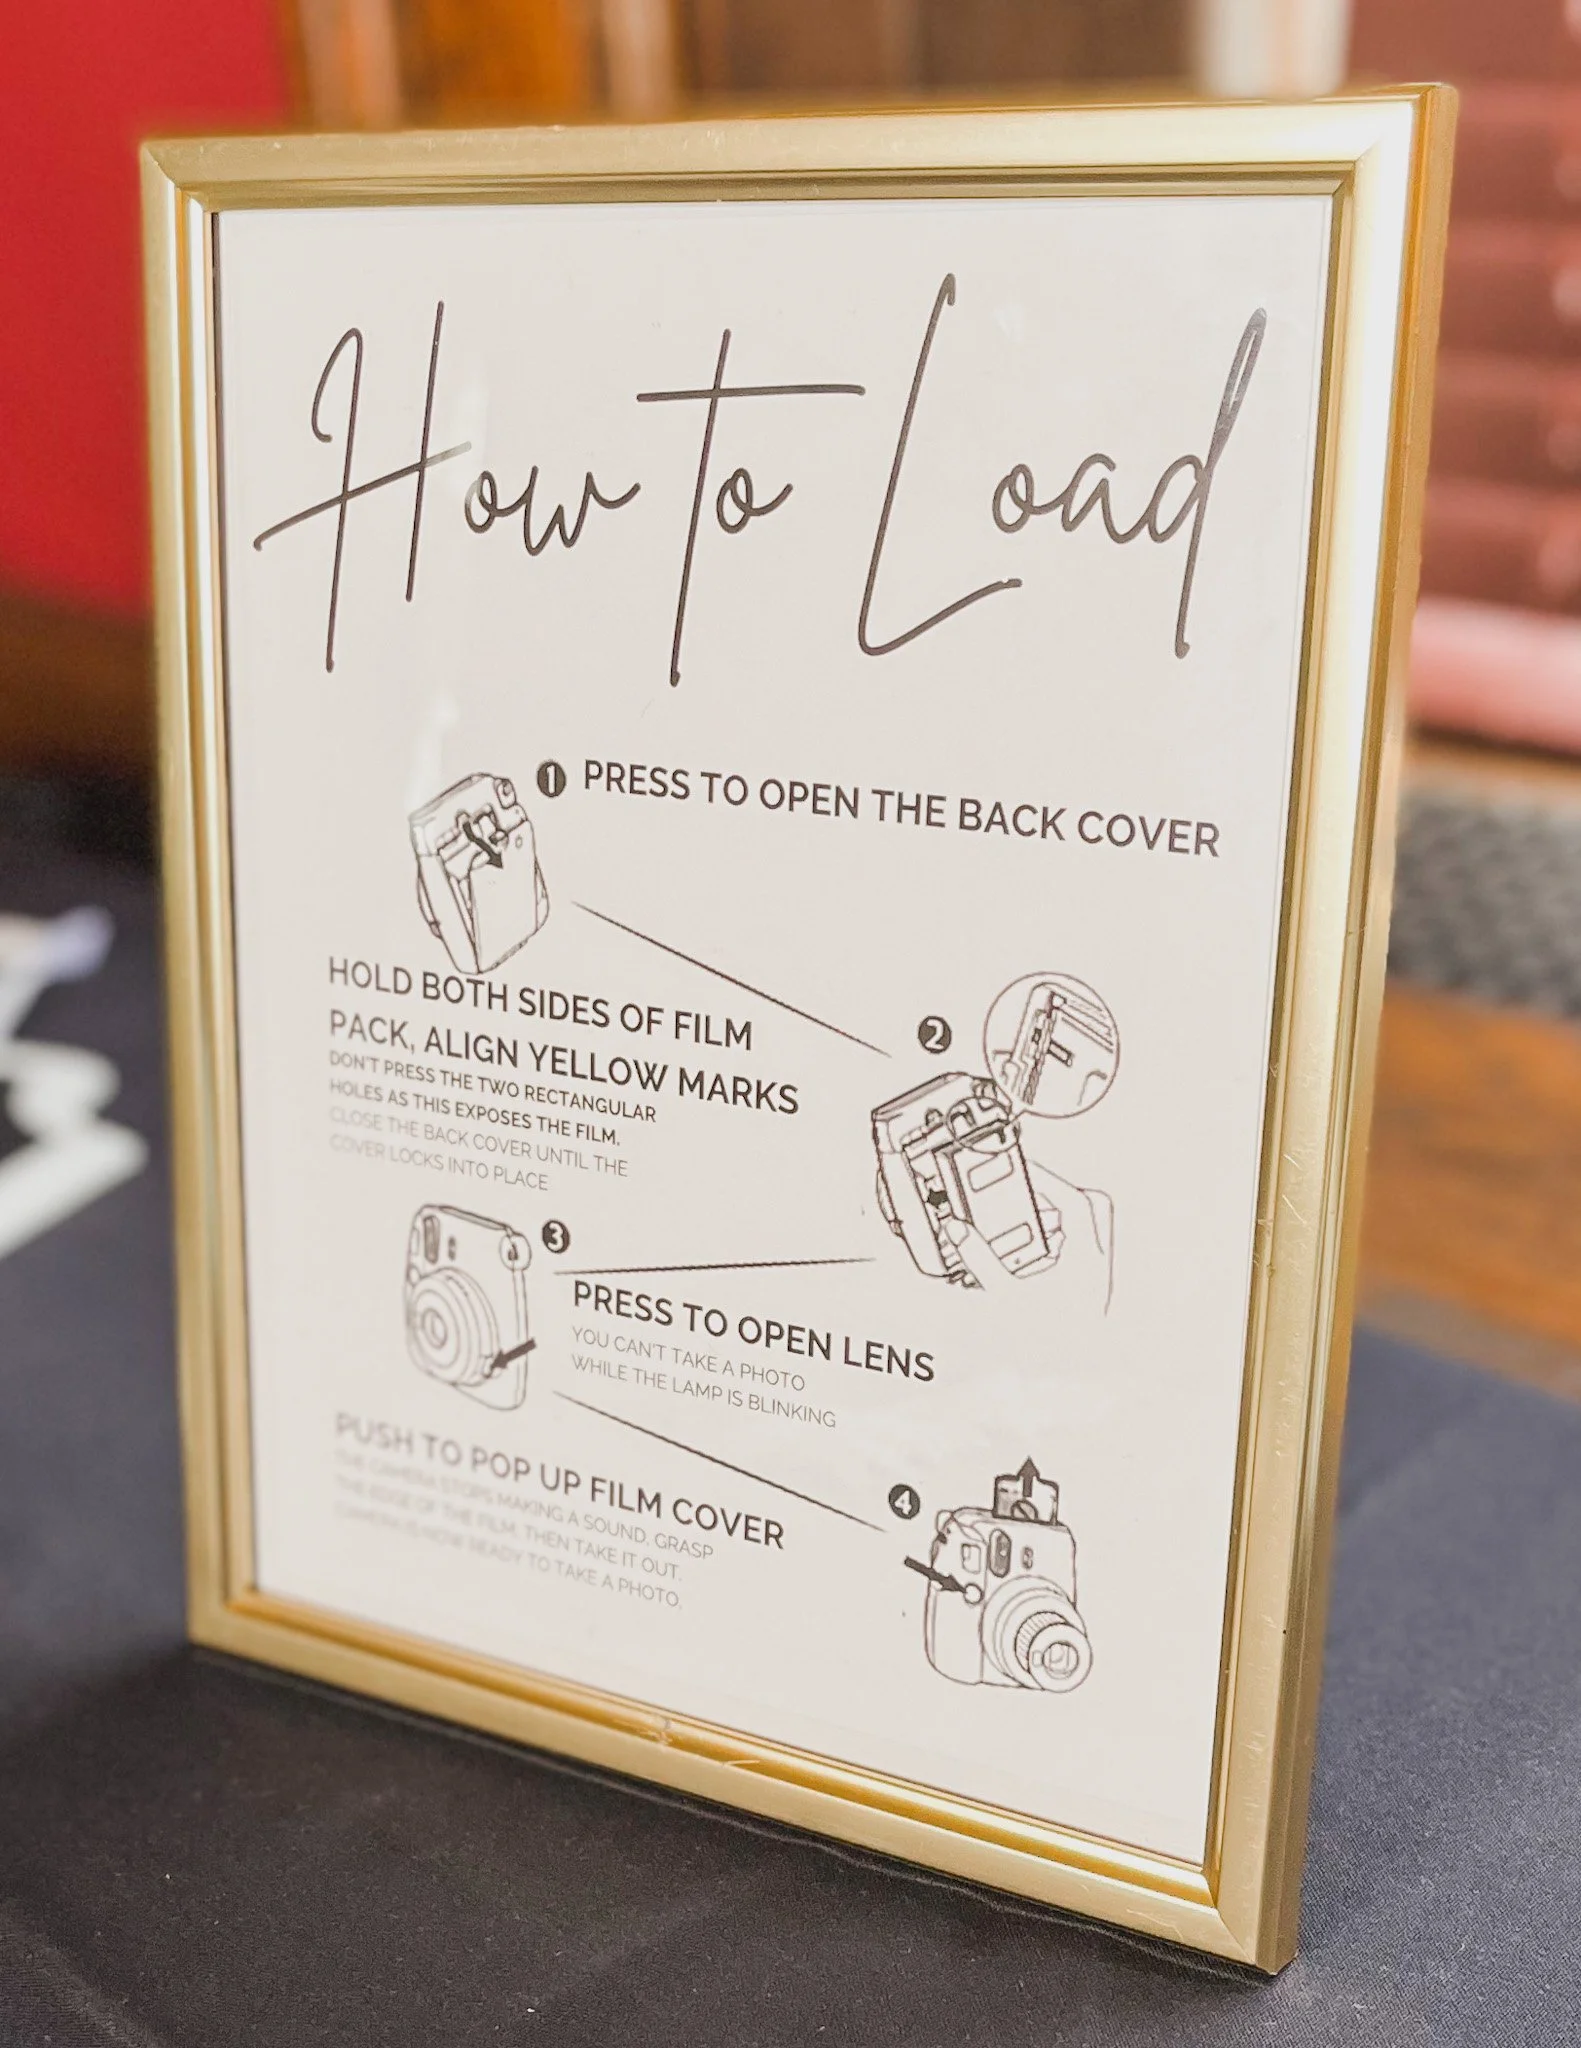 How to Load
1 PRESS TO OPEN THE BACK COVER
HOLD BOTH SIDES OF FILM
PACK, ALIGN YELLOW MARKS
DON'T PRESS THE TWO RECTANGULAR
HOLES AS THIS EXPOSES THE FILM.
CLOSE THE BACK COVER UNTIL THE
COVER LOCKS INTO PLACE
2
3
PRESS TO OPEN LENS
YOU CAN'T TAKE A PHOTO
WHILE THE LAMP IS BLINKING
PUSH TO POP UP FILM COVER
THE CAMERA STOPS MAKING A SOUND, GRASP
THE EDGE OF THE FILM, THEN TAKE IT OUT.
CAMERA IS NOW READY TO TAKE A PHOTO.
4